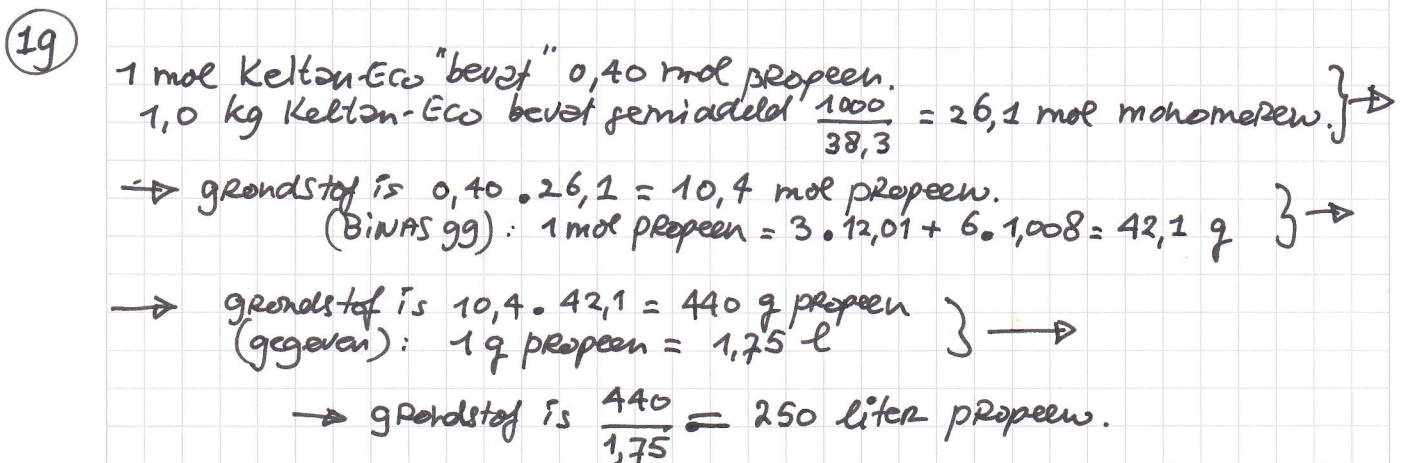 19
1 mol Keltan-Eco "bevat" 0,40 mol propeen.
1,0 kg Keltan-Eco bevat gemiddeld 1000/38,3 = 26,1 mol monomeren. } →
→ grondstof is 0,40 . 26,1 = 10,4 mol propeen.
(BINAS 99) : 1 mol propeen = 3 . 12,01 + 6 . 1,008 = 42,1 g } →
→ grondstof is 10,4 . 42,1 = 440 g propeen
(gegeven) : 1 g propeen = 1,75 l } →
→ grondstof is 440/1,75 = 250 liter propeen.